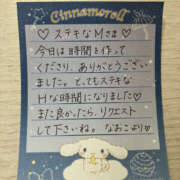 Cinnamoroll
♡ ステキなMさま ♡
今日は時間を作って
くださり、ありがとうござい
ました。とってもステキな
Hな時間になりました♡
また良かったら、リクエスト
して下さいね。なおこより♡